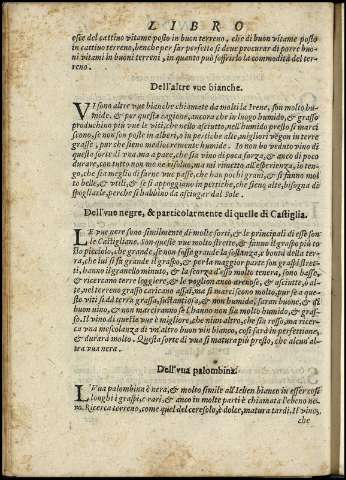 LIBRO
esse del cattiuo vitame posto in buon terreno, che di buon vitame posto
in cattiuo terreno, benche per far perfetto si deue procurar di porre buo-
ni vitami in buoni terreni, in quanto può soffrirlo la commodità del ter-
reno.
Dell'altre vue bianche.
VI sono altre vue bianche chiamate da molti la Irene, son molto hu-
mide, & pur questa cagione, ancora che in luogo humido, & grasso
produchino più vue le viti, che nello asciutto, nell'humido presto si marci
scono, se non son poste in alberi, o in pertiche alte, migliori vegon in terre
grasse, pur che sieno mediocremente humide. Io non ho veduto vino di
questa sorte di vua, ma a pace, che sia vino di poca forza, & anco di poco
durare, con tutto non me ne risoluo, ma mi rimetto all'esperienza, io ten-
go, che sia meglio di farne vue passe, che han pochi grani, & si fanno mol
to belle, & vtili, & se si appoggiano in pertiche, che sieno alte, bisogna di
spogliarle, perche si habbino da asciugar dal Sole.
Dell'vue negre, & particolarmente di quelle di Castiglia.
LE vue nere sono similmente di molte sorti, & le principali di esse son
le Castigliane. Son queste vue molto strette, & fanno il graspo più to
sto picciolo, che grande, se non fosse grande la sostanza, & bontà della ter-
ra, che iui si fa grande il graspo, & per la maggior parte son graspi stret-
ti, hanno il granello minuto, & la scorza d'esso molto tenera, sono basse,
& ricercano terre leggiere, & le vogliono anco arenose, & asciutte, ò al-
te, nel terreno grasso caricano assai, ma si marciscono molto, pur se a que-
ste viti si dà terra grassa, sustantiosa, & non humida, faran buone, & di
buon vino, & non marciranno se l'hanno non sia molto stretti, & grosso.
Il vino di queste vue è migliore, che niun altro, che sia rosso, ma ricer-
ca vna mescolanza di vn'altro buon vin bianco, così sarà in perfettione,
& durarà molto. Questa sorte di vua si matura più presto, che alcun'al-
tra vua nera.
Dell'vua palombina.
L'Vua palombina è nera, & molto simile all'Ieben bianco in esser così
longhi i graspi, e rari, & anco in molte parti è chiamata l'ebeno ne-
ro. Ricerca terreno, come quel del ceresolo, è dolce, matura tardi. Il vino,
che